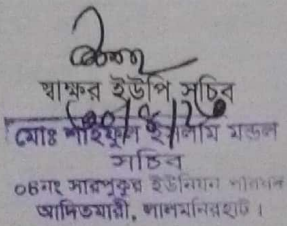 স্বাক্ষর ইউপি সচিব
মোঃ সাইফুল ইসলাম মন্ডল
সচিব
০৪নং সারপুকুর ইউনিয়ন পরিষদ
আদিতমারী, লালমনিরহাট।